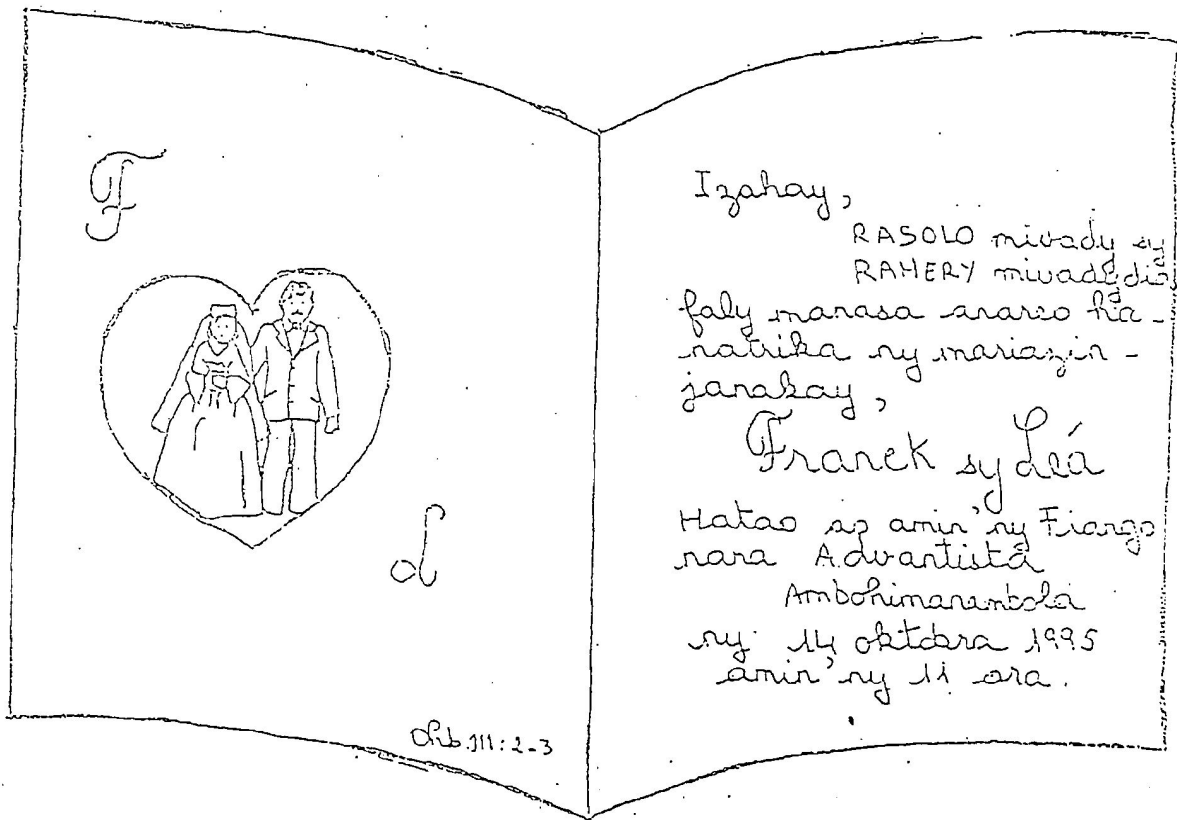 F
L
Ohb.111:2-3
Izahay,
RASOLO mivady sy
RAHERY mivady dia
faly manasa anareo ha-
natrika ny mariazin-
janakay,
Franck sy Léa
Hatao ao amin'ny Fiango
nana Advantista
Ambohimanambola
ny 14 oktobra 1995
amin'ny 11 ora.